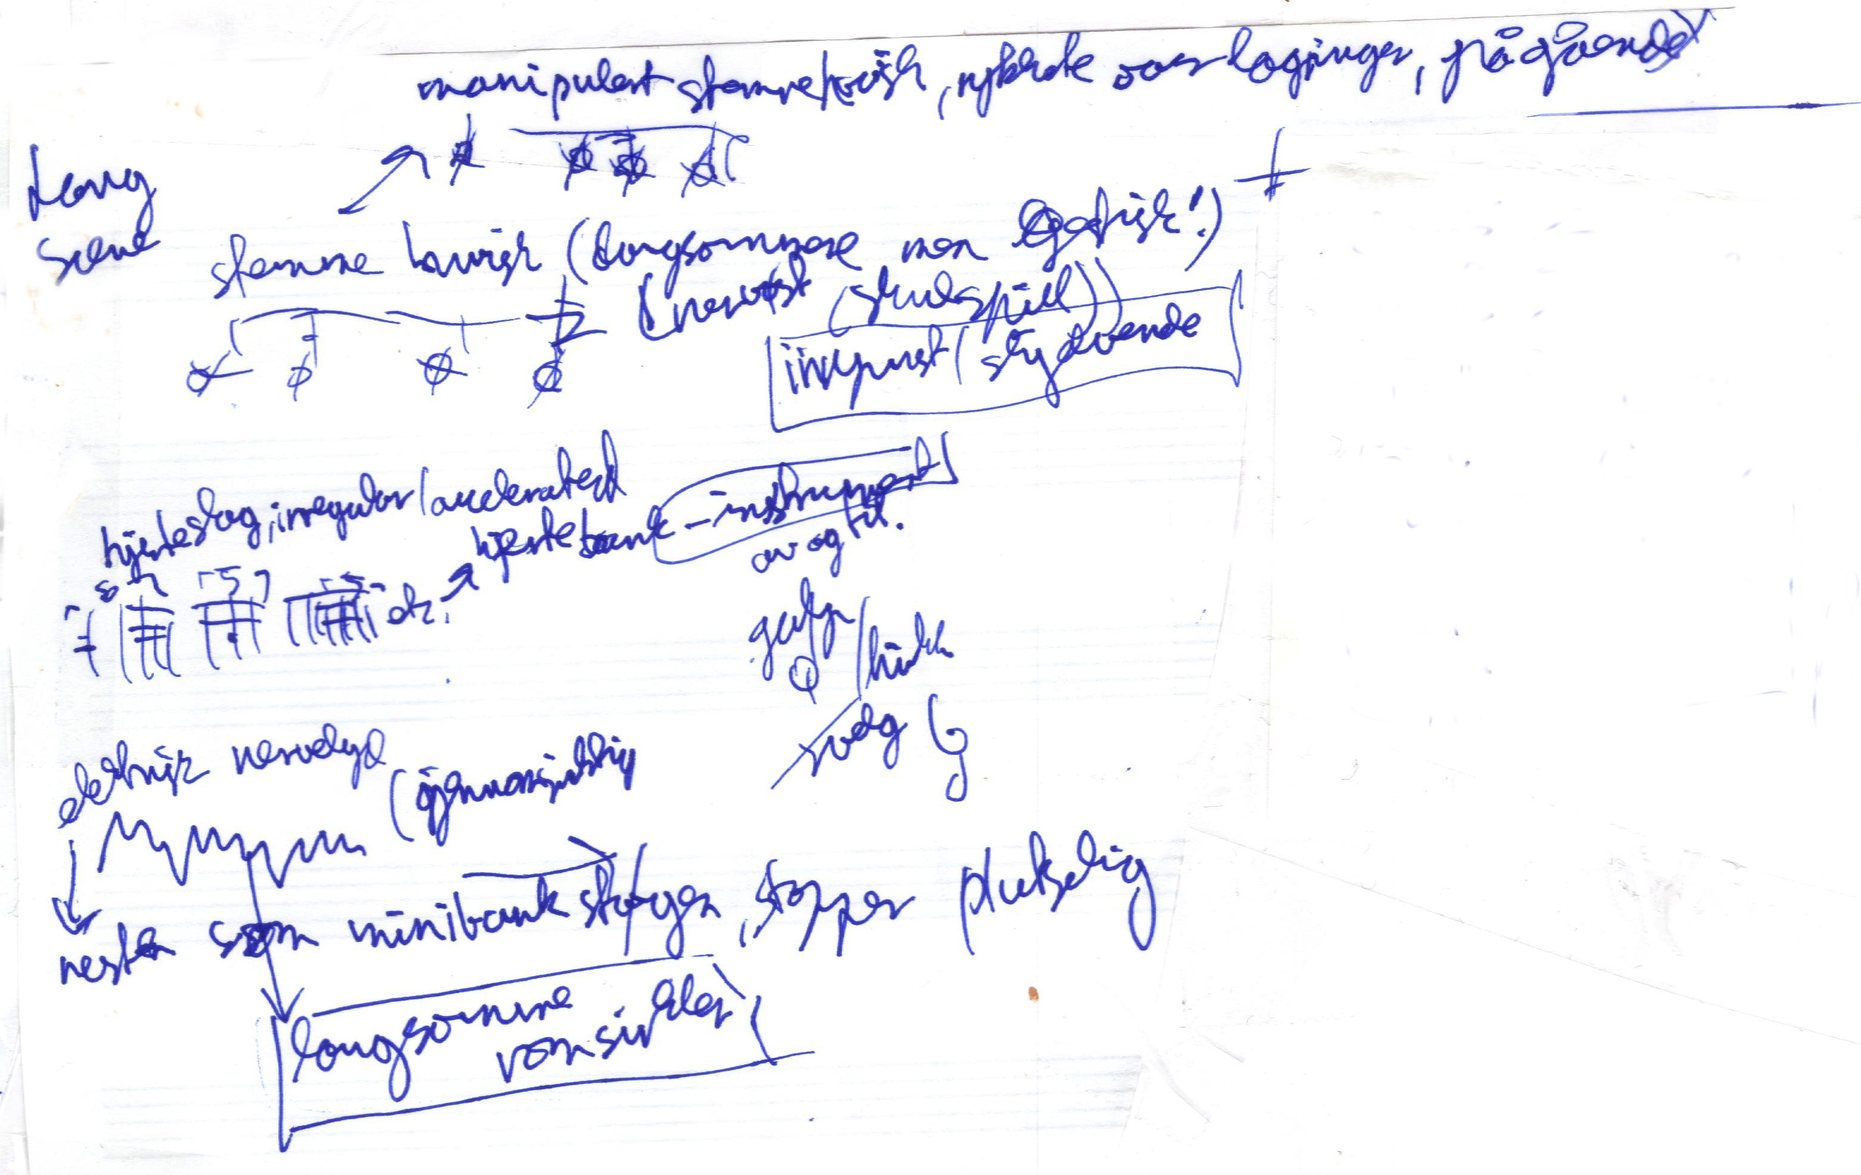 manipulert stemme/hvisk, rykkete overlagringer, pågående
Lang
scene
stemme hvisk (langsommere men
(nervøst (skuespill))
innpust (stydoende
hjerteslag, irregular/accelerated
hjertebank - instrument
av og til.
5 5 etc.
/hikk
svelg
elektrisk nervelyd
(gjennomsiktig
nesten som minibank støyen, stopper plutselig
langsomme
romsirkler